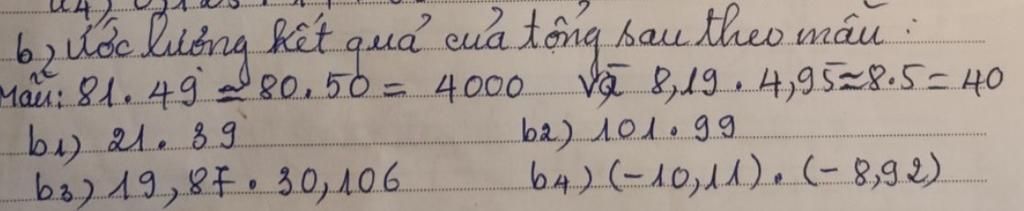 b) Ước lượng kết quả của tổng sau theo mẫu :
Mẫu: 81 . 49 ≃ 80 . 50 = 4000 và 8,19 . 4,95 ≃ 8 . 5 = 40
b1) 21 . 39 b2) 101 . 99
b3) 19,87 . 30,106 b4) (-10,11) . (-8,92)